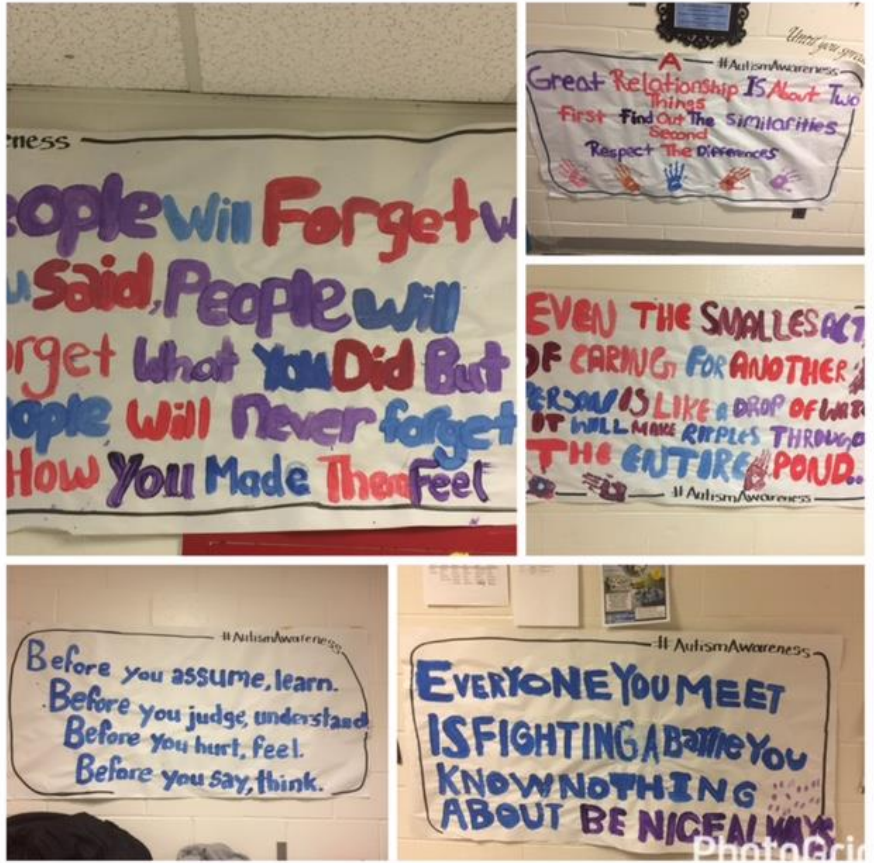 eness
eople Will Forget W
u Said, People Will
rget What You Did But
ople Will Never forget
How You Made Them Feel
Until you spread
#AutismAwareness
A
Great Relationship IS About Two
Things
First Find Out The Similarities
Second
Respect The Differences
EVEN THE SMALLES ACT
OF CARING FOR ANOTHER
PERSON IS LIKE A DROP OF WATE
IT WILL MAKE RIPPLES THROUGO
THE ENTIRE POND..
#AutismAwareness
#AutismAwareness
Before you assume, learn.
Before you judge, understand
Before you hurt, feel.
Before you say, think.
#AutismAwareness
EVERYONE YOU MEET
IS FIGHTING A BaTTle YOU
KNOW NOTHING
ABOUT BE NICE ALWAYS
PhotoGrid